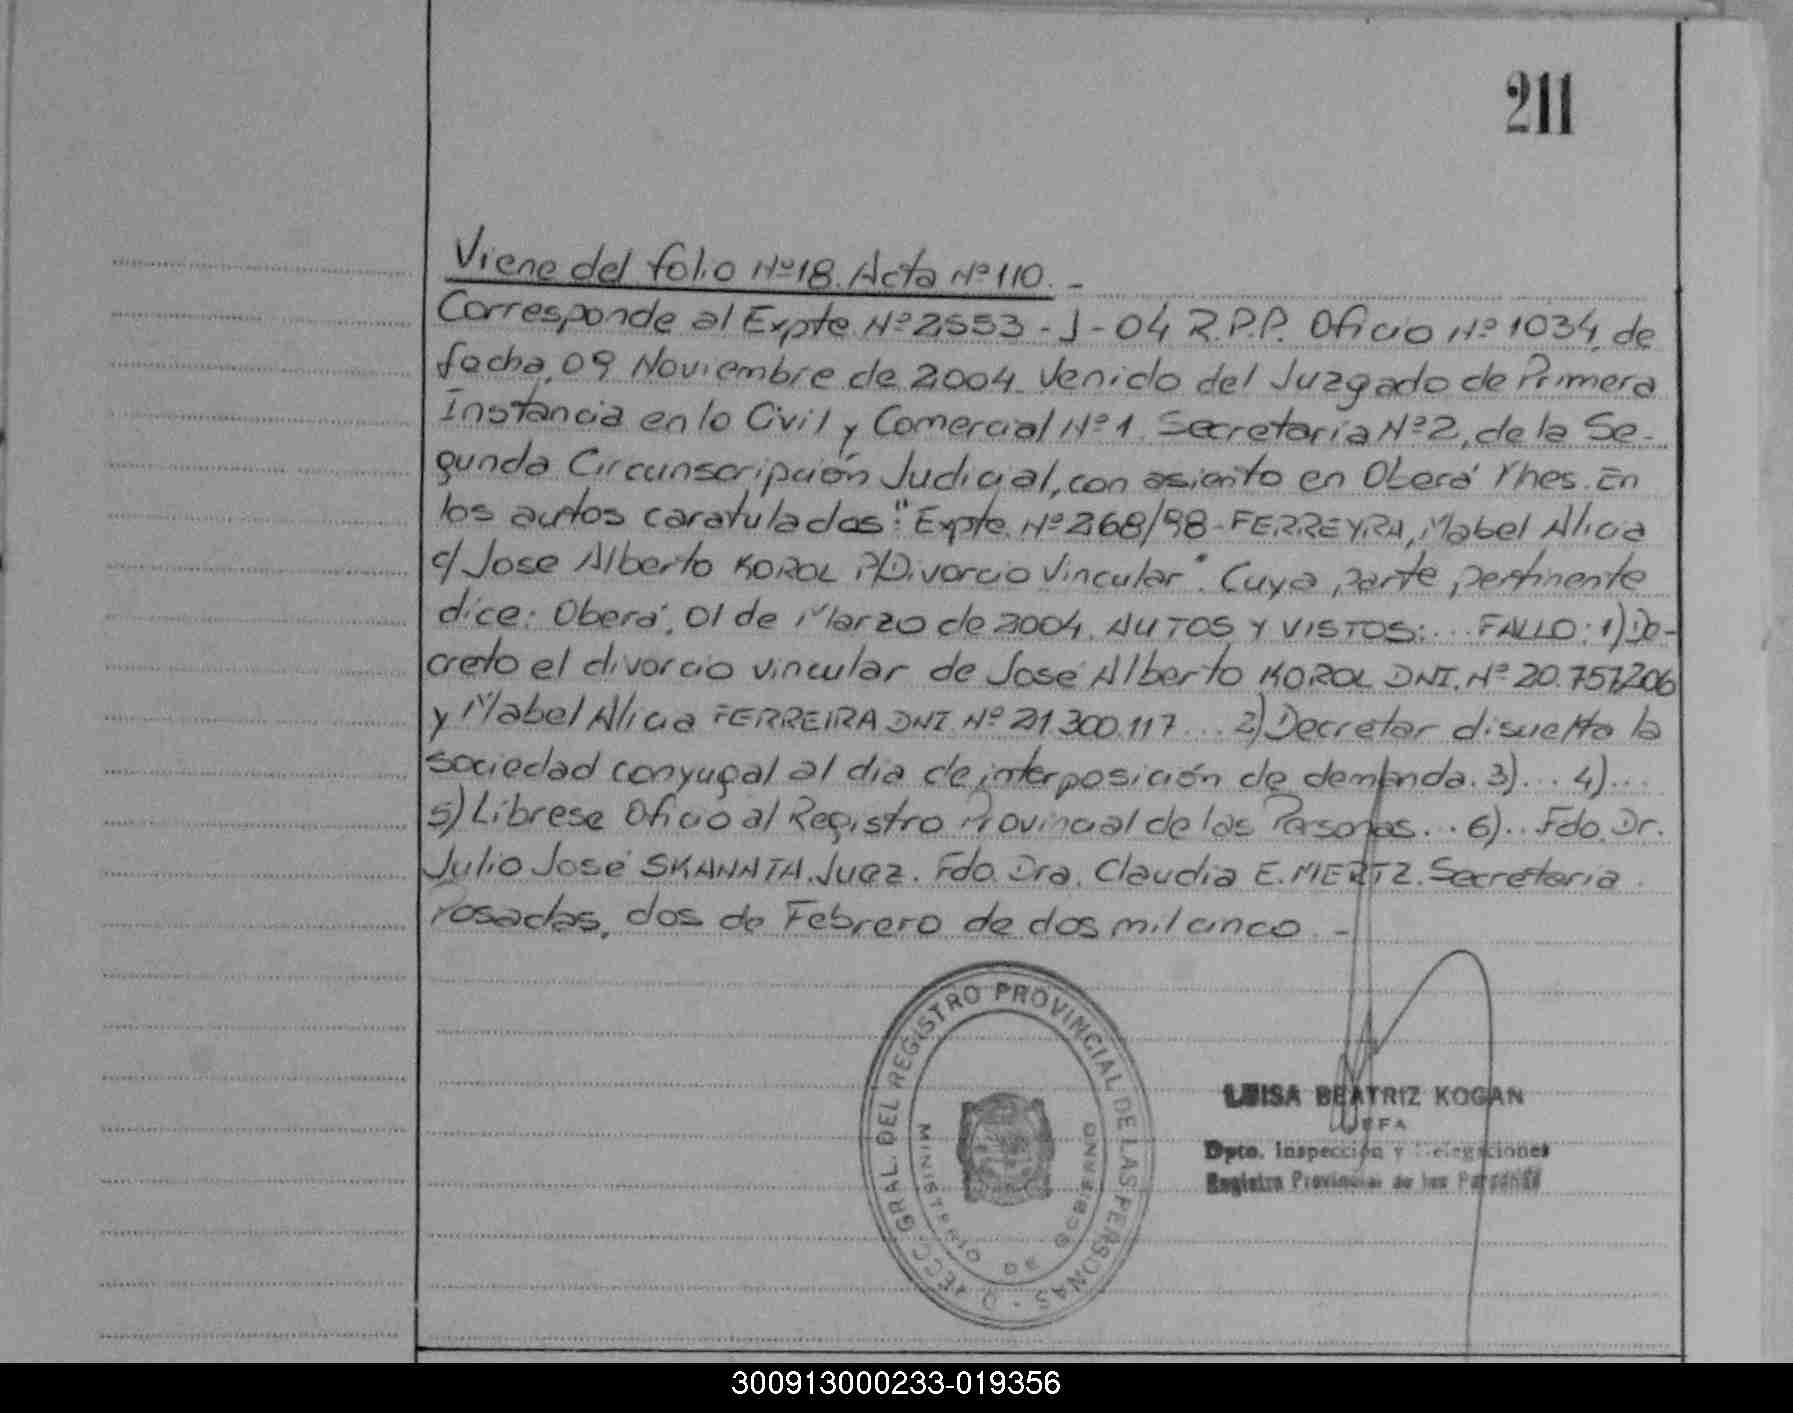 211
Viene del folio Nº 18. Acta Nº 110. -
Corresponde al Expte. Nº 2553 - J - 04 R.P.P. Oficio Nº 1034, de
fecha, 09 Noviembre de 2004. Venido del Juzgado de Primera
Instancia en lo Civil y Comercial Nº 1. Secretaría Nº 2, de la Se-
gunda Circunscripción Judicial, con asiento en Oberá Mnes. En
los autos caratulados: "Expte. Nº 268/98 - FERREYRA, Mabel Alicia
c/ Jose Alberto KOROL P/Divorcio Vincular". Cuya parte pertinente
dice: Oberá, 01 de Marzo de 2004. AUTOS Y VISTOS:... FALLO: 1) De-
creto el divorcio vincular de José Alberto KOROL DNI. Nº 20.757.206
y Mabel Alicia FERREIRA DNI Nº 21.300.117... 2) Decretar disuelta la
sociedad conyugal al día de interposición de demanda. 3)... 4)...
5) Líbrese Oficio al Registro Provincial de las Personas... 6).. Fdo. Dr.
Julio José SKANATA. Juez. Fdo. Dra. Claudia E. MERTZ. Secretaria.
Posadas, dos de Febrero de dos mil cinco. -
DIRECC. GRAL. DEL REGISTRO PROVINCIAL DE LAS PERSONAS
MINISTERIO DE GOBIERNO
LUISA BEATRIZ KOGAN
JEFA
Dpto. Inspección y Delegaciones
Registro Provincial de las Personas
300913000233-019356